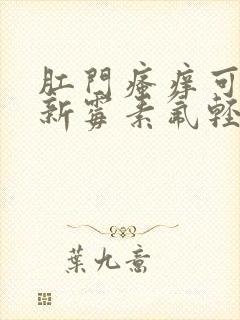 肛門瘙癢可
新霉素氟輕
葉九意